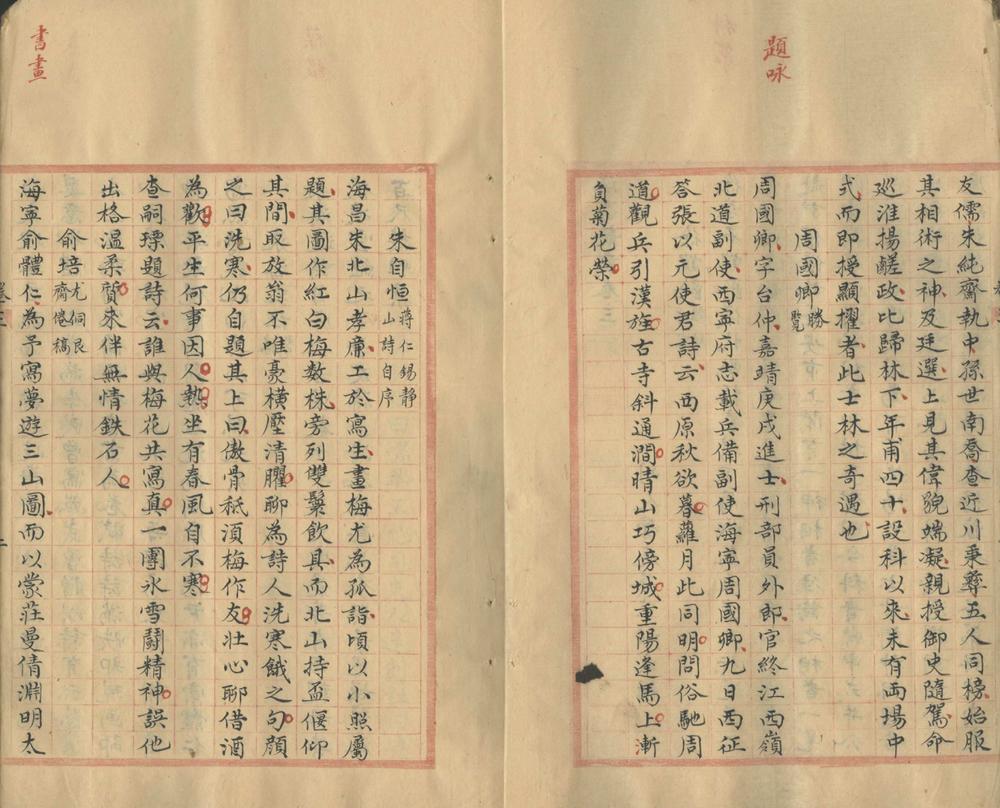 題咏
友儒朱純齋執中孫世南喬查近川秉彝五人同榜始服
其相術之神及廷選上見其偉貌端凝親授御史隨駕命
巡淮揚鹺政比歸林下年甫四十設科以來未有両場中
式而即授顯擢者此士林之奇遇也
周國卿勝覽
周國卿字台仲嘉靖庚戌進士刑部員外郎官終江西嶺
北道副使西寧府志載兵備副使海寧周國卿九日西征
答張以元使君詩云西原秋欲暮蘿月此同明問俗馳周
道觀兵引漢旌古寺斜通澗晴山巧傍城重陽逢馬上漸
負菊花榮
書畫
朱自恒蔣仁錫靜山詩自序
海昌朱北山孝廉工於寫生畫梅尤為孤詣頃以小照屬
題其圖作紅白梅数株旁列雙鬟飲具而北山持盃偃仰
其間取放翁不唯豪橫壓清臞聊為詩人洗寒餓之句顏
之曰洗寒仍自題其上曰傲骨秪須梅作友壯心聊借酒
為歡平生何事因人熱坐有春風自不寒
查嗣瑮題詩云誰與梅花共寫真一團氷雪鬬精神誤他
出格溫柔質來伴無情鉄石人
俞培尤侗艮齋倦稿
海寧俞體仁為予寫夢遊三山圖而以蒙莊曼倩淵明太